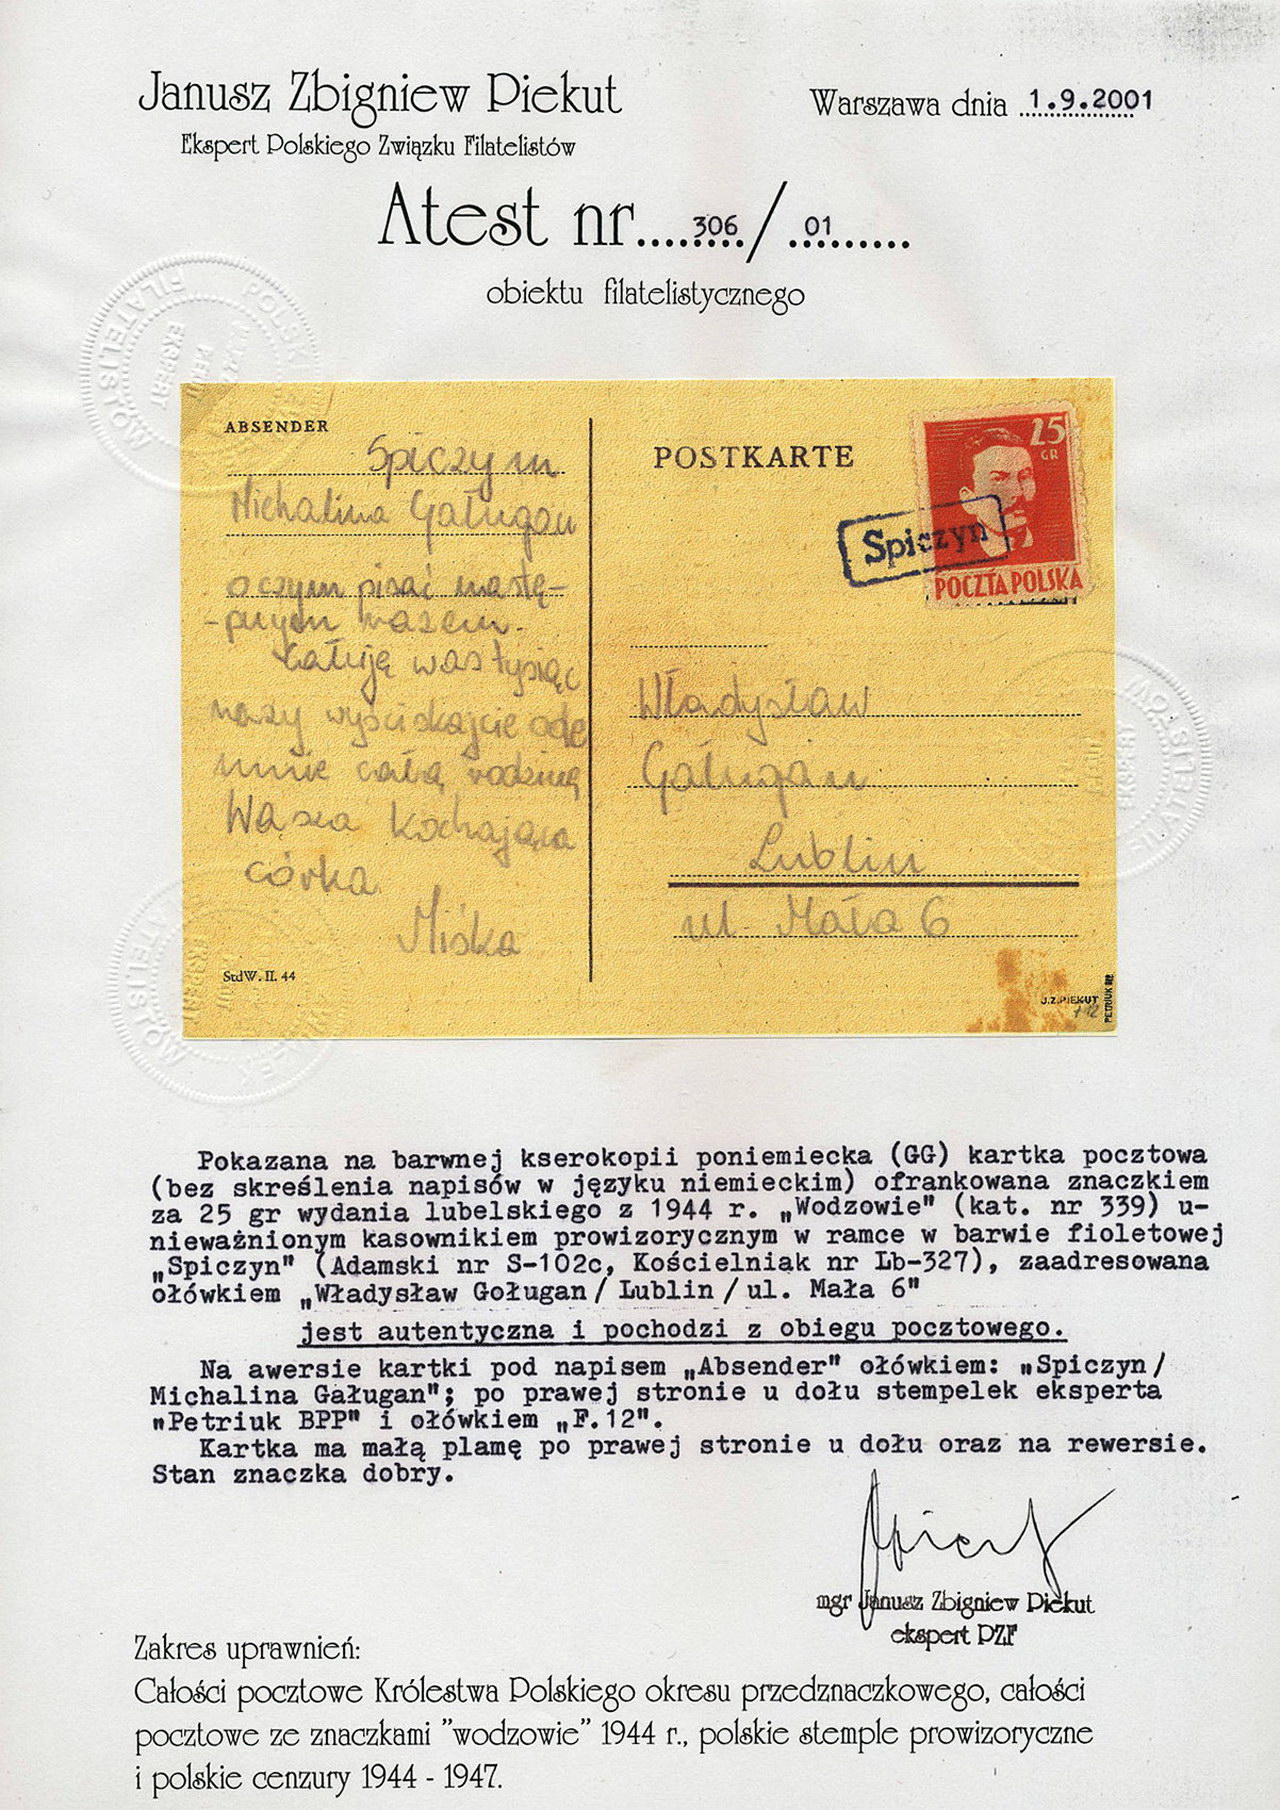 Janusz Zbigniew Piekut
Ekspert Polskiego Związku Filatelistów
Warszawa dnia 1.9.2001
Atest nr....306/.01......
obiektu filatelistycznego
POLSKI ZWIĄZEK FILATELISTÓW
EKSPERT
ABSENDER
Spiczyn
Michalina Gaługan
o czym pisać nastę-
-pnym razem.
Całuję was tysiąc
razy wyściskajcie ode
mnie całą rodzinę
Wasza kochająca
córka
Miśka
StdW. II. 44
POSTKARTE
25
GR
POCZTA POLSKA
Spiczyn
Władysław
Gaługan
Lublin
ul. Mała 6
J.Z.PIEKUT
PETRIUK
Pokazana na barwnej kserokopii poniemiecka (GG) kartka pocztowa
(bez skreślenia napisów w języku niemieckim) ofrankowana znaczkiem
za 25 gr wydania lubelskiego z 1944 r. „Wodzowie" (kat. nr 339) u-
nieważnionym kasownikiem prowizorycznym w ramce w barwie fioletowej
„Spiczyn" (Adamski nr S-102c, Kościelniak nr Lb-327), zaadresowana
ołówkiem „Władysław Goługan/Lublin/ul. Mała 6"
jest autentyczna i pochodzi z obiegu pocztowego.
Na awersie kartki pod napisem „Absender" ołówkiem: „Spiczyn/
Michalina Gaługan"; po prawej stronie u dołu stempelek eksperta
„Petriuk BPP" i ołówkiem „F.12".
Kartka ma małą plamę po prawej stronie u dołu oraz na rewersie.
Stan znaczka dobry.
mgr Janusz Zbigniew Piekut
ekspert PZF
Zakres uprawnień:
Całości pocztowe Królestwa Polskiego okresu przedznaczkowego, całości
pocztowe ze znaczkami "wodzowie" 1944 r., polskie stemple prowizoryczne
i polskie cenzury 1944 - 1947.